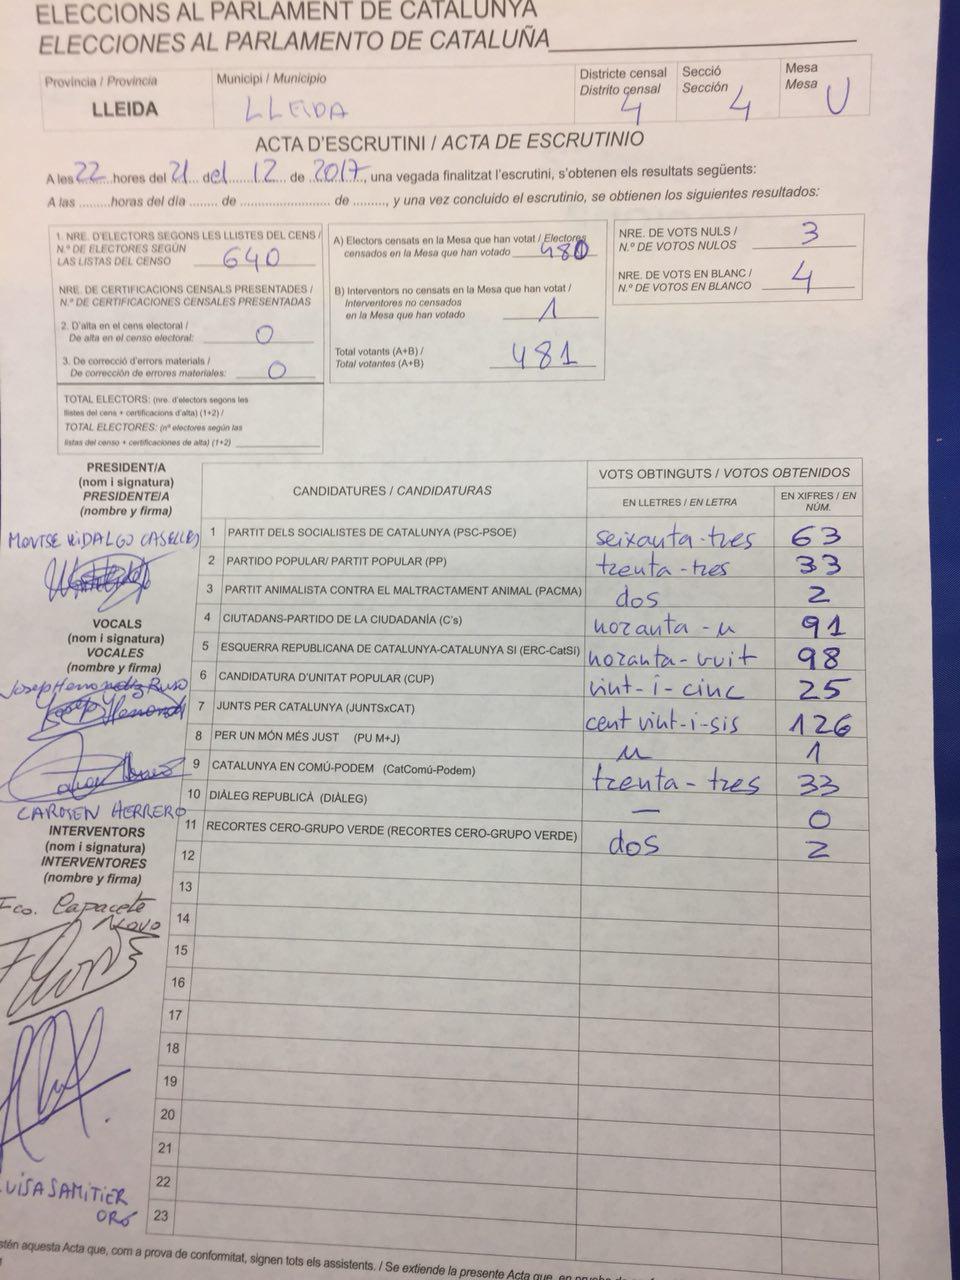 ELECCIONS AL PARLAMENT DE CATALUNYA
ELECCIONES AL PARLAMENTO DE CATALUÑA
Provincia / Provincia
LLEIDA
Municipi / Municipio
LLEIDA
Districte censal
Distrito censal
4
Secció
Sección
4
Mesa
Mesa
U
ACTA D'ESCRUTINI / ACTA DE ESCRUTINIO
A les 22 hores del 21 del 12 de 2017, una vegada finalitzat l'escrutini, s'obtenen els resultats següents:
A las ........horas del día ....... de ...................... de ........, y una vez concluido el escrutinio, se obtienen los siguientes resultados:
1. NRE. D'ELECTORS SEGONS LES LLISTES DEL CENS /
N.º DE ELECTORES SEGÚN
LAS LISTAS DEL CENSO 640
NRE. DE CERTIFICACIONS CENSALS PRESENTADES /
N.º DE CERTIFICACIONES CENSALES PRESENTADAS
2. D'alta en el cens electoral /
De alta en el censo electoral: 0
3. De correcció d'errors materials /
De corrección de errores materiales: 0
TOTAL ELECTORS: (nre. d'electors segons les
llistes del cens + certificacions d'alta) (1+2) /
TOTAL ELECTORES: (nº electores según las
listas del censo + certificaciones de alta) (1+2)
A) Electors censats en la Mesa que han votat / Electores
censados en la Mesa que han votado 480
B) Interventors no censats en la Mesa que han votat /
Interventores no censados
en la Mesa que han votado 1
Total votants (A+B) /
Total votantes (A+B) 481
NRE. DE VOTS NULS /
N.º DE VOTOS NULOS 3
NRE. DE VOTS EN BLANC /
N.º DE VOTOS EN BLANCO 4
PRESIDENT/A
(nom i signatura)
PRESIDENTE/A
(nombre y firma)
MONTSE VIDALGO CASELLES
VOCALS
(nom i signatura)
VOCALES
(nombre y firma)
CARMEN HERRERO
INTERVENTORS
(nom i signatura)
INTERVENTORES
(nombre y firma)
Fco. Capacete
LUISA SAMITIER
ORÓ
CANDIDATURES / CANDIDATURAS
VOTS OBTINGUTS / VOTOS OBTENIDOS
EN LLETRES / EN LETRA
EN XIFRES / EN NÚM.
1 PARTIT DELS SOCIALISTES DE CATALUNYA (PSC-PSOE) seixanta-tres 63
2 PARTIDO POPULAR/ PARTIT POPULAR (PP) trenta-tres 33
3 PARTIT ANIMALISTA CONTRA EL MALTRACTAMENT ANIMAL (PACMA) dos 2
4 CIUTADANS-PARTIDO DE LA CIUDADANÍA (C's) noranta-u 91
5 ESQUERRA REPUBLICANA DE CATALUNYA-CATALUNYA SÍ (ERC-CatSí) noranta-vuit 98
6 CANDIDATURA D'UNITAT POPULAR (CUP) vint-i-cinc 25
7 JUNTS PER CATALUNYA (JUNTSxCAT) cent vint-i-sis 126
8 PER UN MÓN MÉS JUST (PU M+J) u 1
9 CATALUNYA EN COMÚ-PODEM (CatComú-Podem) trenta-tres 33
10 DIÀLEG REPUBLICÀ (DIÀLEG) — 0
11 RECORTES CERO-GRUPO VERDE (RECORTES CERO-GRUPO VERDE) dos 2
12
13
14
15
16
17
18
19
20
21
22
23
estén aquesta Acta que, com a prova de conformitat, signen tots els assistents. / Se extiende la presente Acta que, en